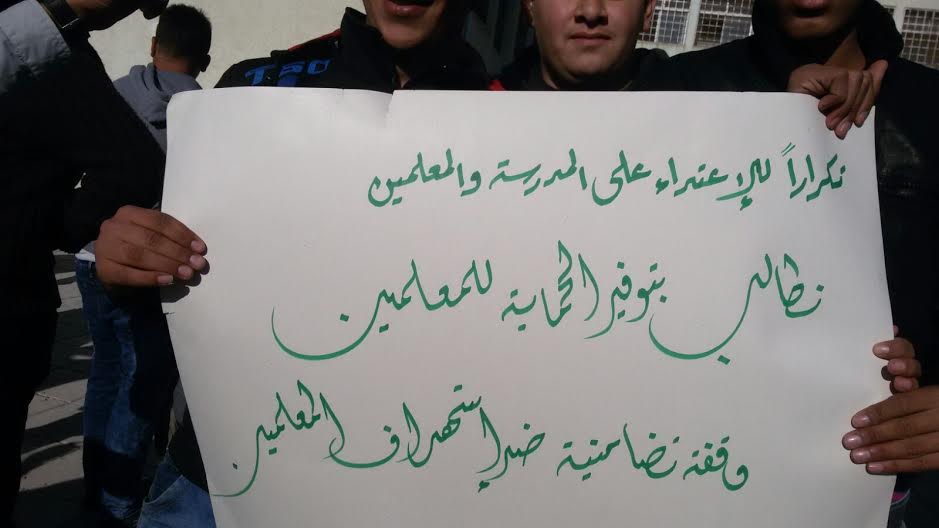 تكراراً للإعتداء على المدرسة والمعلمين
نطالب بتوفير الحماية للمعلمين
وقفة تضامنية ضد إستهداف المعلمين